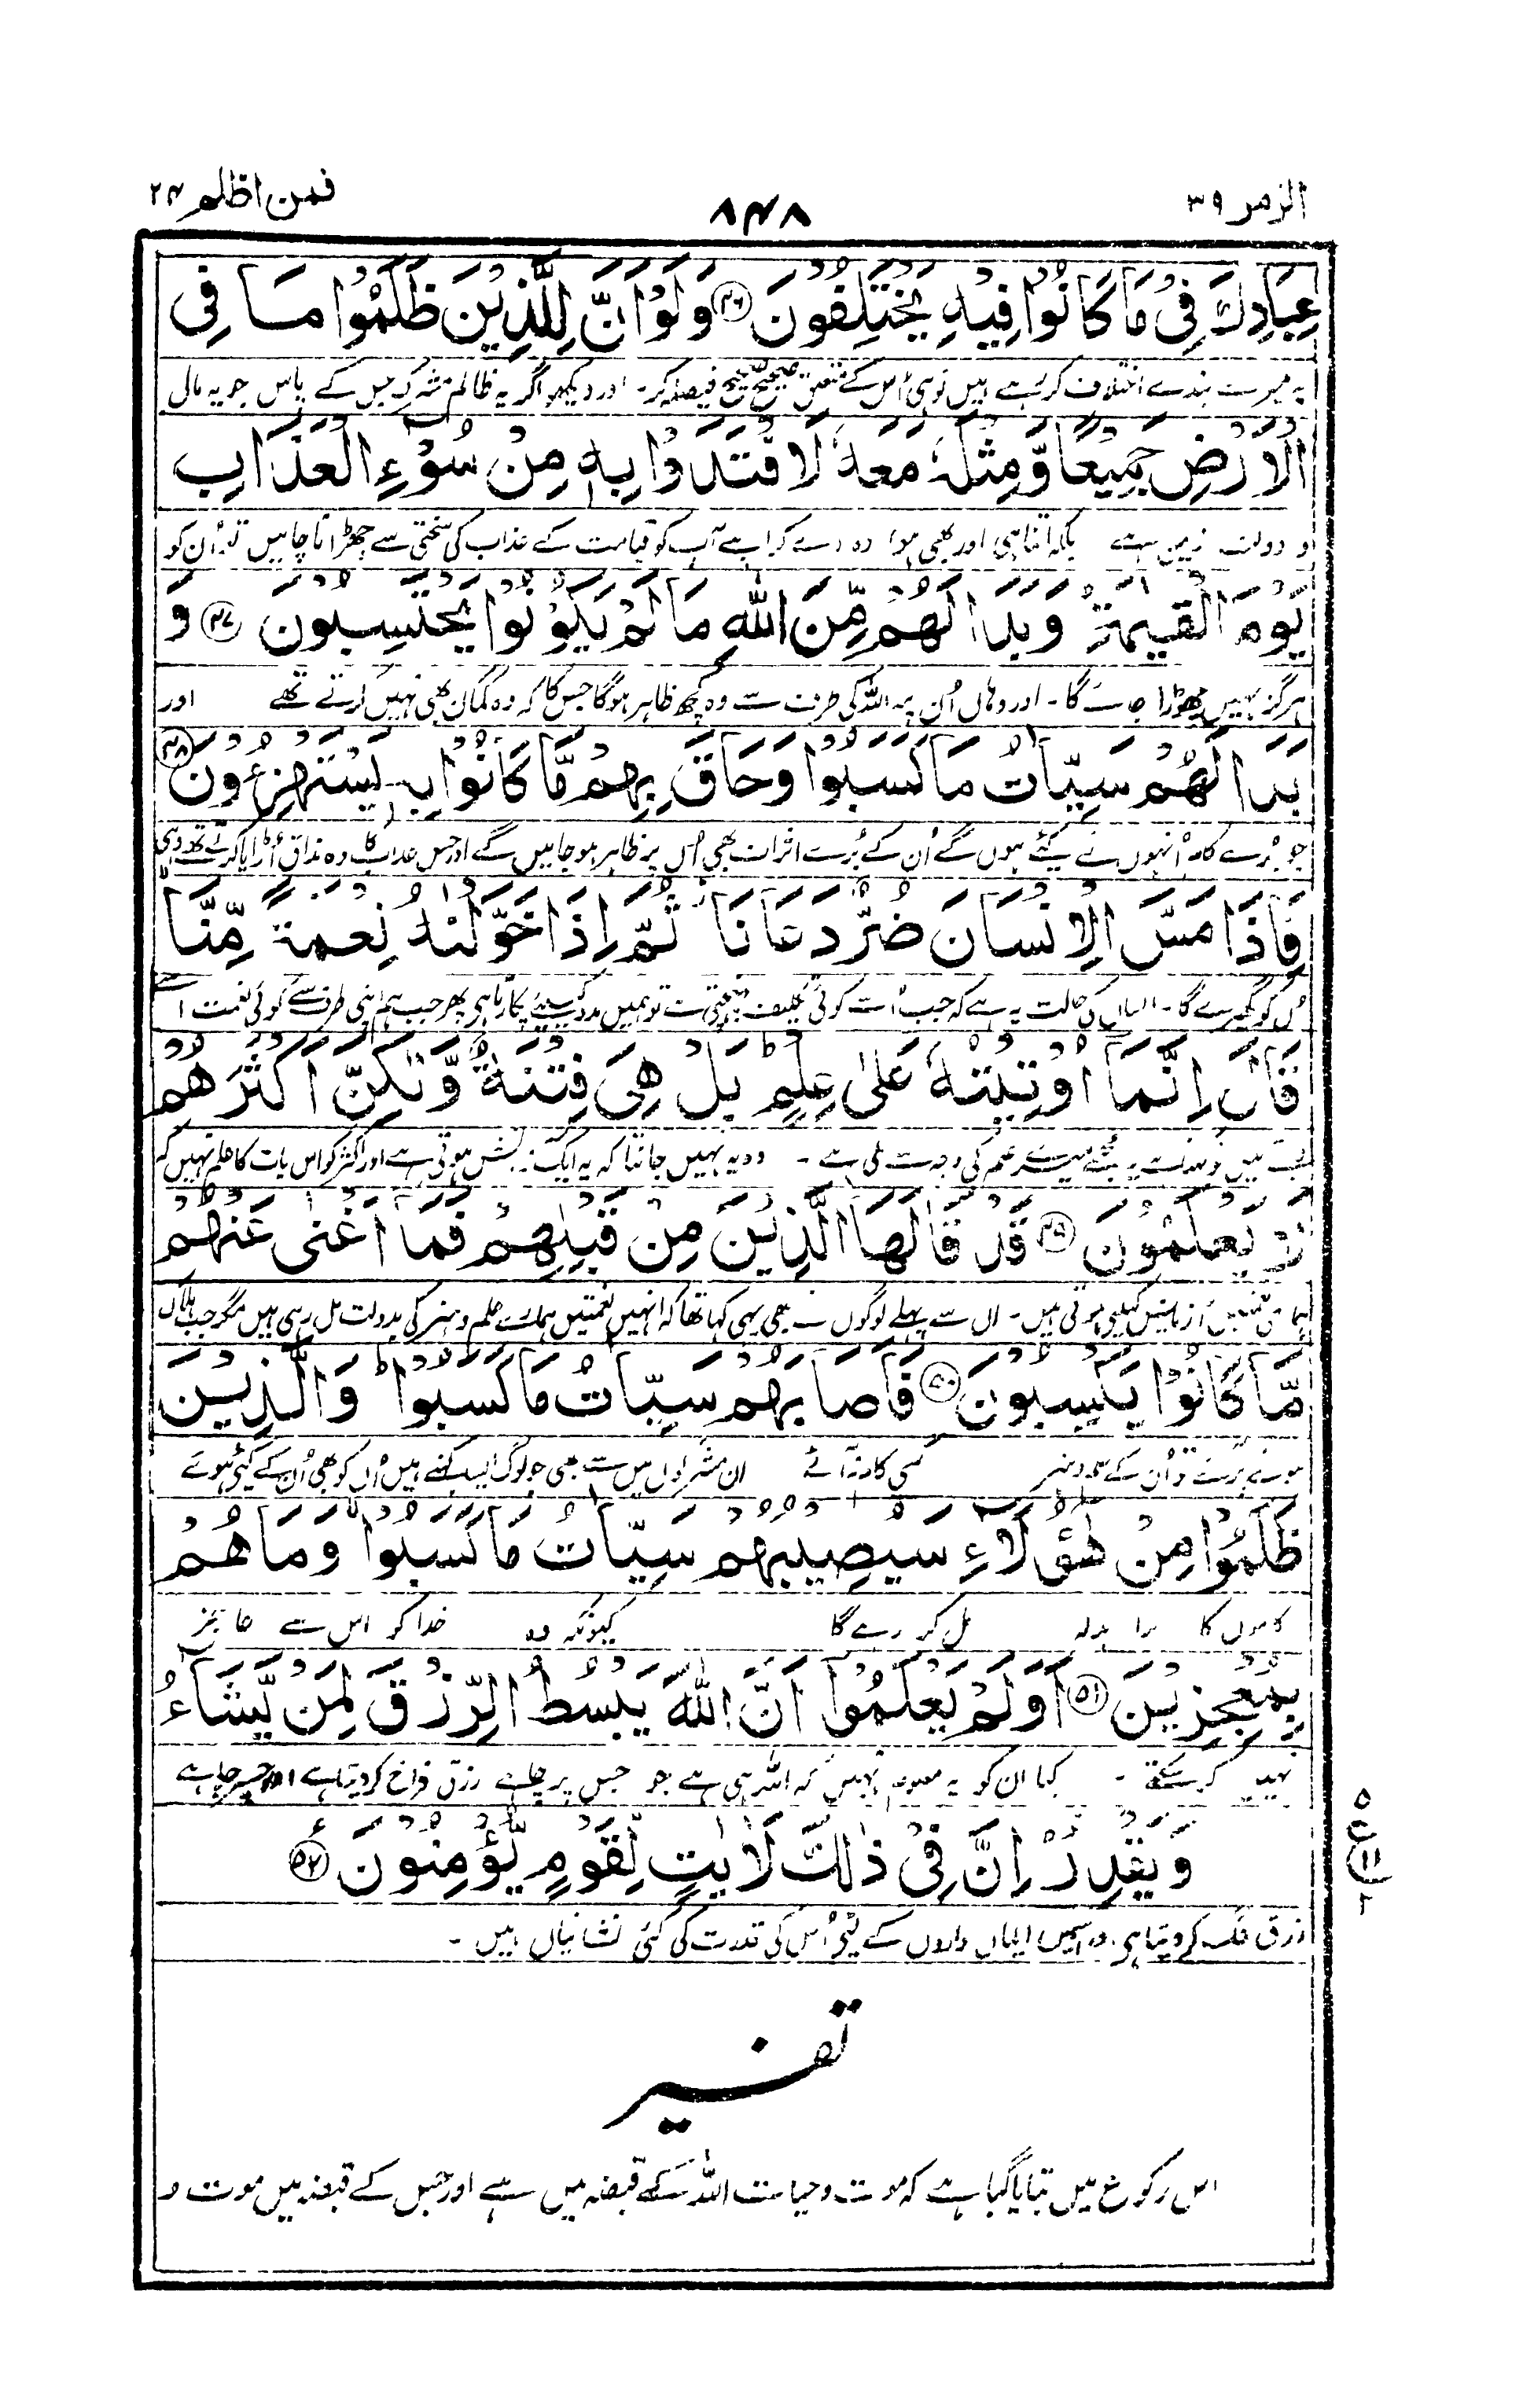 الزمر ۳۹
۸۴۸
فمن اظلم ۲۴
عِبَادِكَ فِيْ مَا كَانُوْا فِيْهِ يَخْتَلِفُوْنَ ﴿۴۶﴾ وَلَوْ اَنَّ لِلَّذِيْنَ ظَلَمُوْا مَا فِي
یہ میرے بندے اختلاف کر رہے ہیں تو ہی اس کے متعلق صحیح صحیح فیصلہ کر۔ اور دیکھو اگر یہ ظالم مشرک جن کے پاس جو یہ مال
الْاَرْضِ جَمِيْعًا وَّمِثْلَهٗ مَعَهٗ لَافْتَدَوْا بِهٖ مِنْ سُوْٓءِ الْعَذَابِ
و دولت زمین ہے بلکہ اتنا ہی اور بھی ہوا وہ دے کر اپنے آپ کو قیامت کے عذاب کی سختی سے چھڑانا چاہیں تو اُن کو
يَوْمَ الْقِيٰمَةِ ۚ وَبَدَا لَهُمْ مِّنَ اللّٰهِ مَا لَمْ يَكُوْنُوْا يَحْتَسِبُوْنَ ﴿۴۷﴾ وَ
ہرگز نہیں چھوڑا جائے گا۔ اور وہاں اُن پر اللہ کی طرف سے وہ کچھ ظاہر ہوگا جس کا کہ وہ گمان بھی نہیں کرتے تھے اور
بَدَا لَهُمْ سَيِّاٰتُ مَا كَسَبُوْا وَحَاقَ بِهِمْ مَّا كَانُوْا بِهٖ يَسْتَهْزِءُوْنَ ﴿۴۸﴾
جو بُرے کام اُنہوں نے کئے ہوں گے اُن کے بُرے اثرات بھی اُن پر ظاہر ہو جائیں گے اور جس عذاب کا وہ مذاق اُڑایا کرتے تھے وہی
فَاِذَا مَسَّ الْاِنْسَانَ ضُرٌّ دَعَانَا ۡ ثُمَّ اِذَا خَوَّلْنٰهُ نِعْمَةً مِّنَّا ۙ
اُن کو گھیرے گا۔ انسان کی حالت یہ ہے کہ جب اُسے کوئی تکلیف پہنچتی ہے تو ہمیں مدد کے لئے پکارتا ہی پھر جب ہم اپنی طرف سے کوئی نعمت اسے
قَالَ اِنَّمَآ اُوْتِيْتُهٗ عَلٰى عِلْمٍ ؕ بَلْ هِيَ فِتْنَةٌ وَّلٰكِنَّ اَكْثَرَهُمْ
میرے علم کی وجہ سے ملی ہے۔ وہ یہ نہیں جانتا کہ یہ ایک آزمائش ہوتی ہے اور اکثر کو اس بات کا علم نہیں کہ
لَا يَعْلَمُوْنَ ﴿۴۹﴾ قَدْ قَالَهَا الَّذِيْنَ مِنْ قَبْلِهِمْ فَمَآ اَغْنٰى عَنْهُمْ
آزمائیش کیلئے ہوتی ہیں۔ ان سے پہلے لوگوں نے بھی یہی کہا تھا کہ انہیں نعمتیں ہمارے علم و ہنر کی بدولت مل رہی ہیں مگر جب ہلاک
مَّا كَانُوْا يَكْسِبُوْنَ ﴿۵۰﴾ فَاَصَابَهُمْ سَيِّاٰتُ مَا كَسَبُوْا ؕ وَالَّذِيْنَ
اُن کے علم و ہنر کسی کام نہ آئے ان مشرکوں میں سے بھی جو لوگ ایسے کہتے ہیں اُن کو بھی اُن کے کئے ہوئے
ظَلَمُوْا مِنْ هٰٓؤُلَآءِ سَيُصِيْبُهُمْ سَيِّاٰتُ مَا كَسَبُوْا ۙ وَمَا هُمْ
کاموں کا برا بدلہ مل کر رہے گا کیونکہ وہ خدا کو اس سے عاجز
بِمُعْجِزِيْنَ ﴿۵۱﴾ اَوَلَمْ يَعْلَمُوْٓا اَنَّ اللّٰهَ يَبْسُطُ الرِّزْقَ لِمَنْ يَّشَآءُ
نہیں کر سکتے۔ کیا ان کو یہ معلوم نہیں کہ اللہ ہی ہے جو جس پر چاہے رزق فراخ کر دیتا ہے اور جس پر چاہے
وَيَقْدِرُ ؕ اِنَّ فِيْ ذٰلِكَ لَاٰيٰتٍ لِّقَوْمٍ يُّؤْمِنُوْنَ ﴿۵۲﴾
رزق تنگ کر دیتا ہی۔ اسمیں ایمان داروں کے لئے اُس کی قدرت کی کئی نشانیاں ہیں۔
۵
ع
۱۱
۲
تفسیر
اس رکوع میں بتایا گیا ہے کہ موت و حیات اللہ کے قبضہ میں ہے اور جس کے قبضہ میں موت و